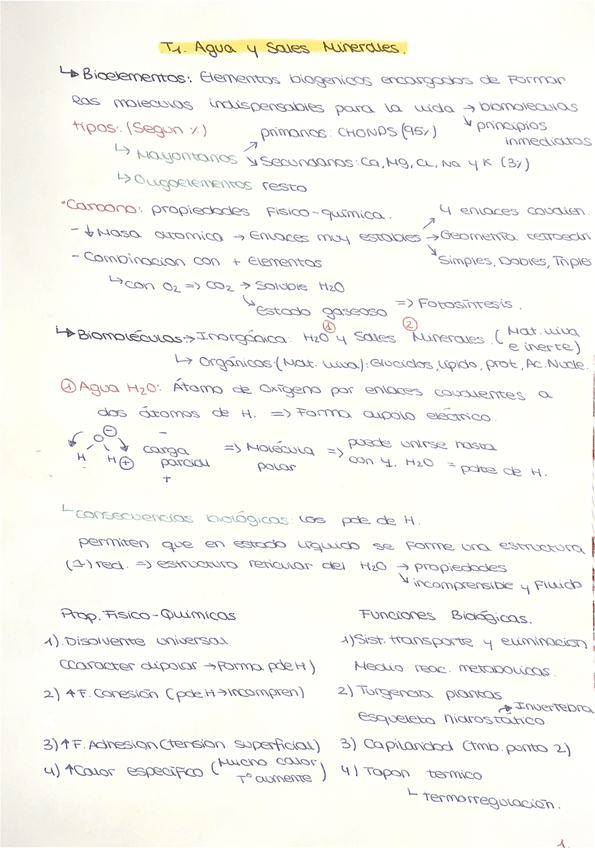 T1. Agua y Sales Minerales.
↳ Bioelementos: Elementos biogenicos encargados de formar
las moleculas indispensables para la vida → biomoleculas
↘ principios inmediatos
tipos: (Según %)
↳ Mayoritarios ↗ primarios: CHONPS (95%)
↘ Secundarios: Ca, Mg, Cl, Na y K (3%)
↳ Oligoelementos resto
· Carbono: propiedades Fisico-química.
- ↓ Masa atomica → Enlaces muy estables ↗ 4 enlaces covalen.
→ Geometria tetraedri
↘ Simples, Dobles, Triple
- Combinacion con + elementos
↳ con O2 => CO2 → Soluble H2O
↘ Estado gaseoso => Fotosíntesis.
↳ Biomoléculas → Inorgánica: H2O ① y Sales Minerales ②. (Mat. viva e inerte)
↳ Orgánicos (Mat. viva): Glucidos, lipido, prot, Ac. Nucle.
① Agua H2O: Átomo de Oxígeno por enlaces covalentes a
dos átomos de H. => Forma dipolo eléctrico.
O ⊖
H H ⊕
- carga parcial +
=> Molécula polar => puede unirse hasta con 4 H2O = pdte de H.
↳ consecuencias biológicas: los pde de H.
permiten que en estado líquido se forme una estructura
(1) red. => estructura reticular del H2O → propiedades
↘ incomprensible y Fluido
Prop. Fisico-Químicas
1). Disolvente universal
(Caracter dipolar → Forma pde H)
2) ↑ F. Cohesión (pde H → incompren)
3) ↑ F. Adhesion (tension superficial)
4) ↑ Calor específico (Mucho calor T° aumente)
Funciones Biológicas.
1) Sist. transporte y eliminacion
Medio reac. metabolicas.
2) Turgencia plantas
esqueleto hidrostático → Invertebra
3) Capilaridad (tmb. punto 2)
4) Tapon termico
↳ termorregulación.
1.